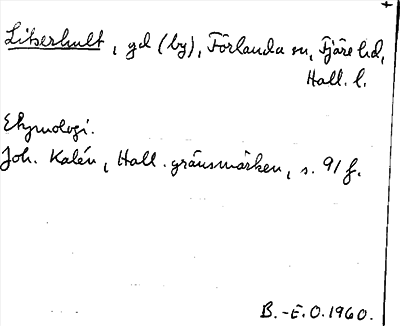 +
Litserhult, gd (by), Förlanda sn, Fjäre hd,
Hall. l.
Etymologi.
Joh. Kalén, Hall. gränsmärken, s. 91 f.
B.-E.O. 1960.